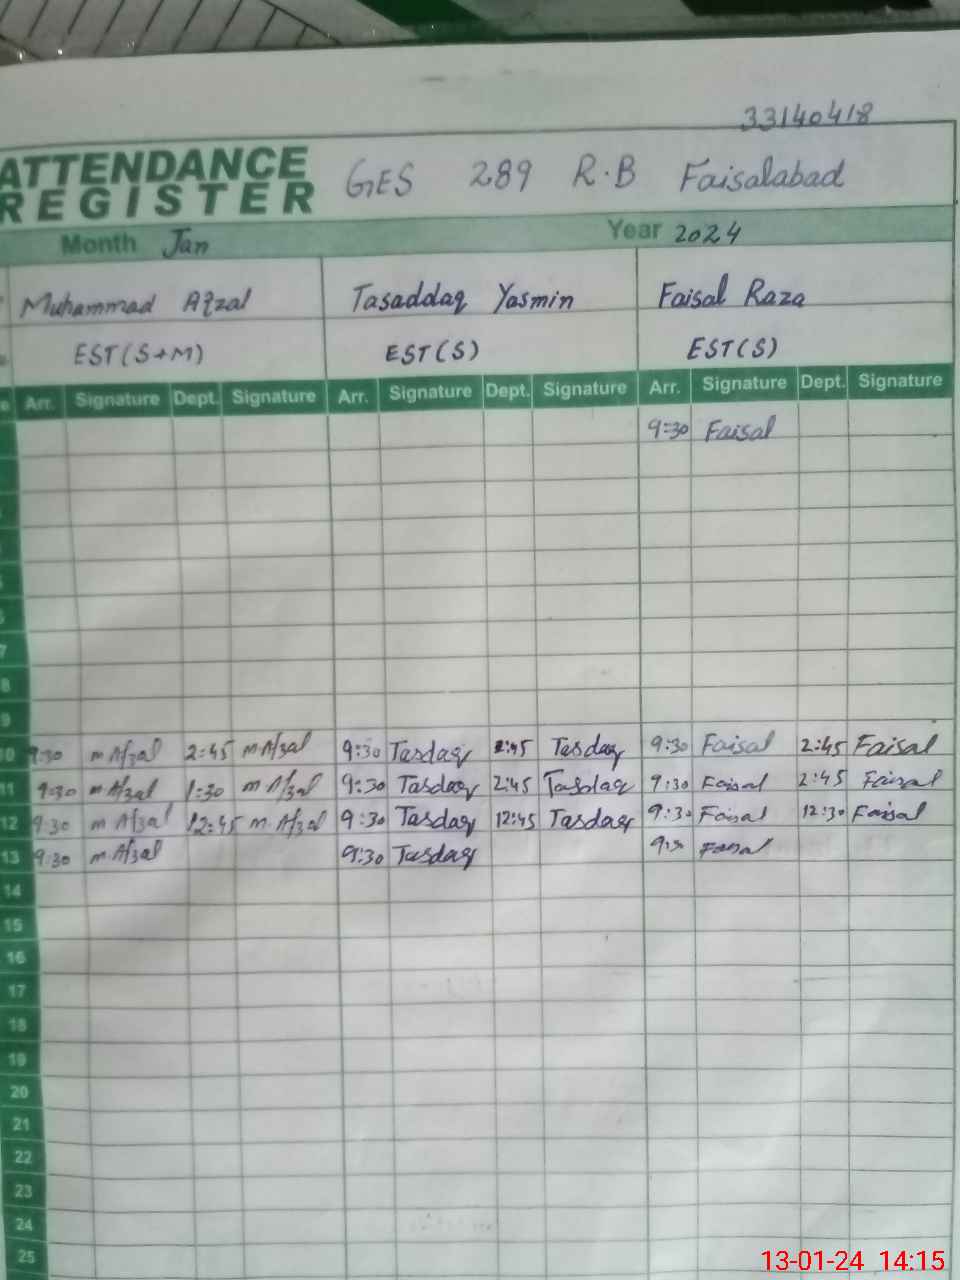 33140418
ATTENDANCE
REGISTER
GES 289 R.B Faisalabad
Month Jan Year 2024
Muhammad Afzal Tasaddaq Yasmin Faisal Raza
EST(S+M) EST(S) EST(S)
Arr. Signature Dept. Signature Arr. Signature Dept. Signature Arr. Signature Dept. Signature
9:30 Faisal
7
8
9
10 9:30 m Afzal 2:45 m Afzal 9:30 Tasdaq 2:45 Tasdaq 9:30 Faisal 2:45 Faisal
11 9:30 m Afzal 1:30 m Afzal 9:30 Tasdaq 2:45 Tasdaq 9:30 Faisal 2:45 Faisal
12 9:30 m Afzal 12:45 m Afzal 9:30 Tasdaq 12:45 Tasdaq 9:30 Faisal 12:30 Faisal
13 9:30 m Afzal 9:30 Tasdaq Faisal
14
15
16
17
18
19
20
21
22
23
24
25
13-01-24 14:15